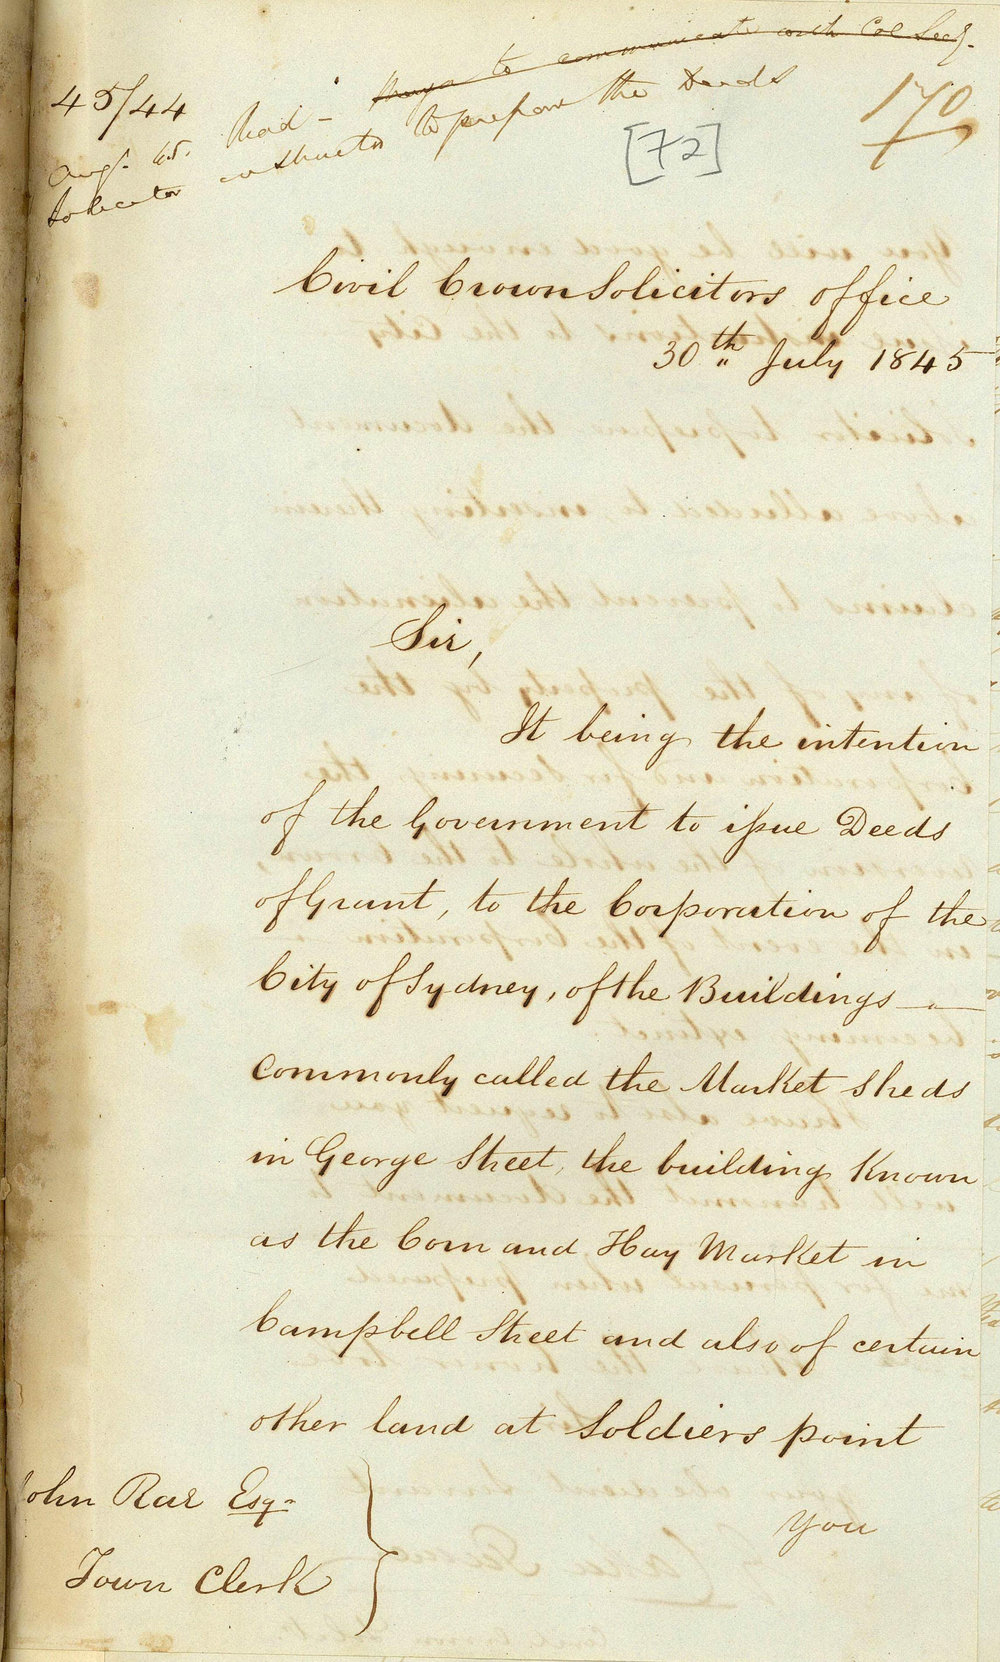 45/44
Read - Mayor to communicate with Col Secy.
Augt. 45.
Solicitor instructed to prepare the Deeds
170
[72]
Civil Crown Solicitors office
30th July 1845
Sir,
It being the intention
of the Government to issue Deeds
of Grant, to the Corporation of the
City of Sydney, of the Buildings
commonly called the Market Sheds
in George Street, the building Known
as the Corn and Hay Market in
Campbell Street and also of certain
other land at Soldiers point
You
John Rae Esqr
Town Clerk